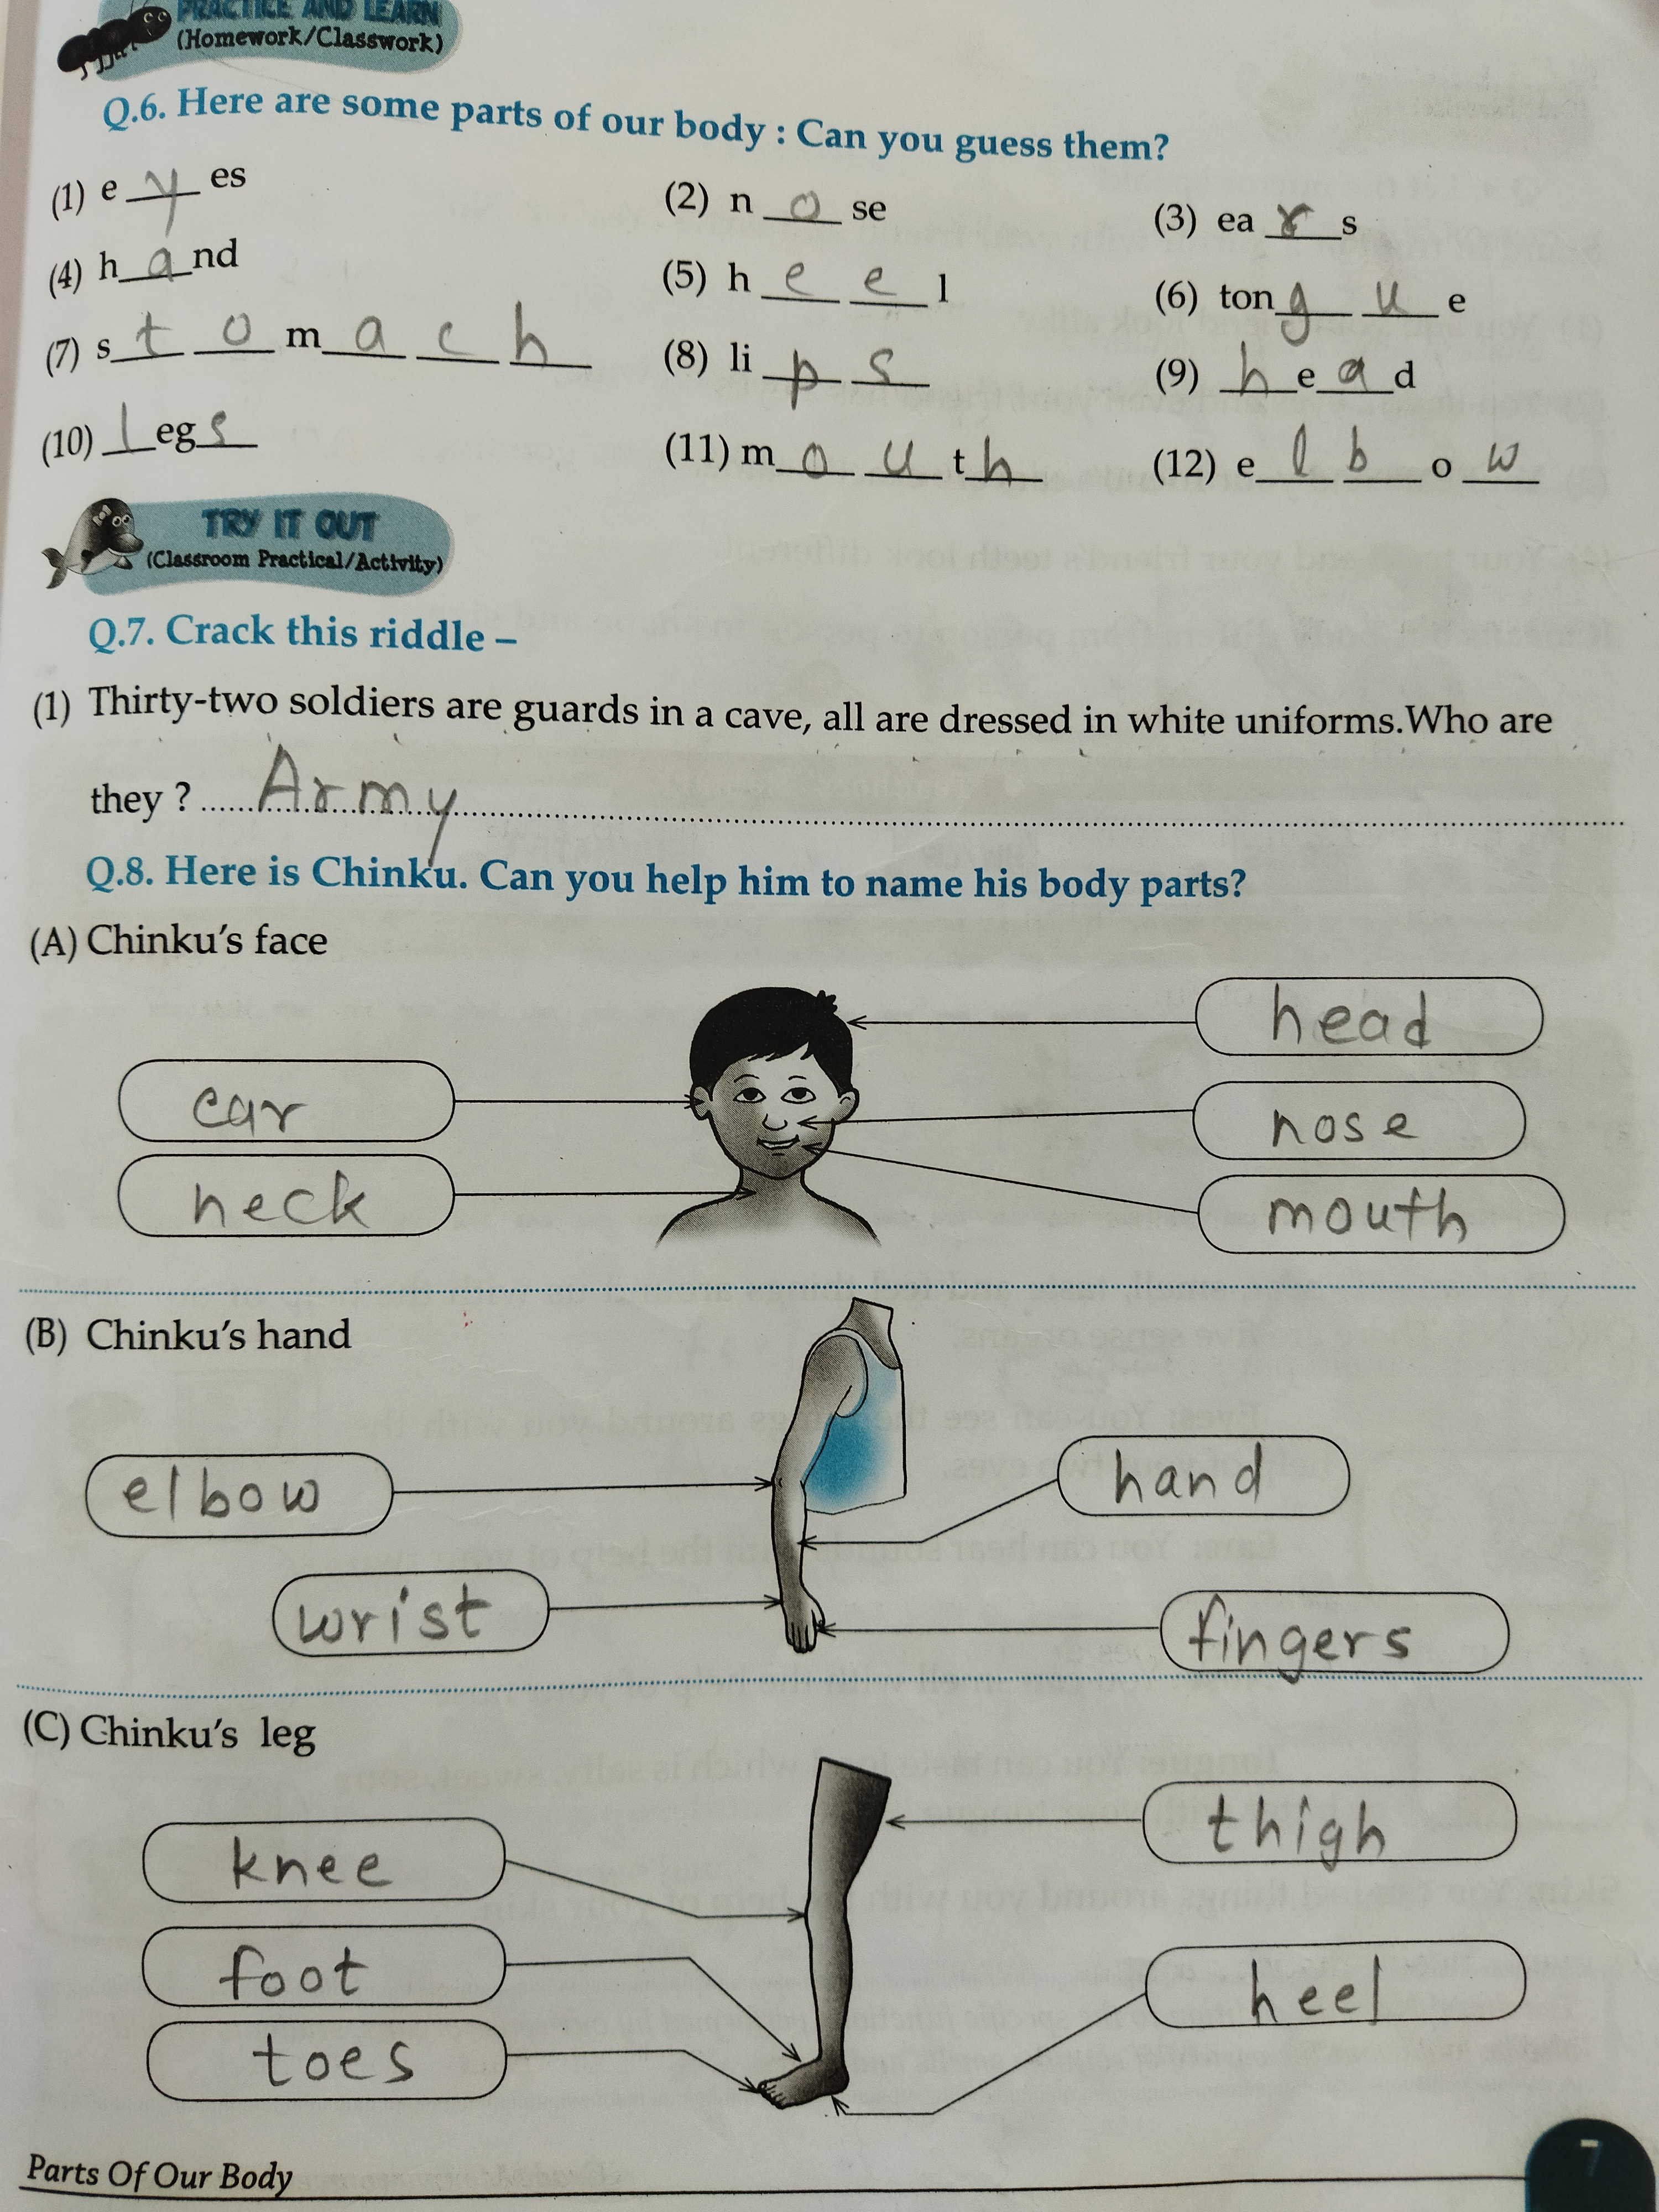 PRACTICE AND LEARN
(Homework/Classwork)
Q.6. Here are some parts of our body : Can you guess them?
(1) e y es (2) n o se (3) ea r s
(4) h a nd (5) h e e l (6) ton g u e
(7) s t o m a c h (8) li p s (9) h e a d
(10) l eg s (11) m o u t h (12) e l b o w
TRY IT OUT
(Classroom Practical/Activity)
Q.7. Crack this riddle –
(1) Thirty-two soldiers are guards in a cave, all are dressed in white uniforms.Who are
they ? ...... Army ......
Q.8. Here is Chinku. Can you help him to name his body parts?
(A) Chinku's face
head
ear
nose
neck
mouth
(B) Chinku's hand
elbow
hand
wrist
fingers
(C) Chinku's leg
thigh
knee
foot
heel
toes
Parts Of Our Body
7